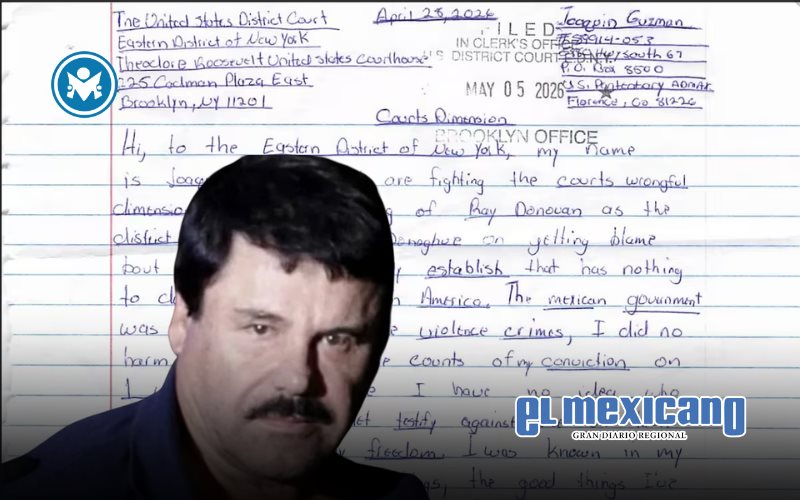 The United States District Court
Eastern District of New York
Theodore Roosevelt United States Courthouse
225 Cadman Plaza East
Brooklyn, NY 11201
April 28, 2026
FILED
IN CLERK'S OFFICE
DISTRICT COURT
MAY 05 2026 ★
BROOKLYN OFFICE
Joaquin Guzman
P.O. Box 8500
U.S. Penitentiary ADMAX
Florence, Co 81226
Courts Dimension
Hi, to the Eastern District of New York, my name
is are fighting the courts wrongful
of Ray Donovan as the
district on getting blame
bout establish that has nothing
to America. The mexican government
was violence crimes, I did no
harm counts of my conviction on
I have no idea who
testify against
freedom I was known in my
the good things I've
EL mexicano
GRAN DIARIO REGIONAL